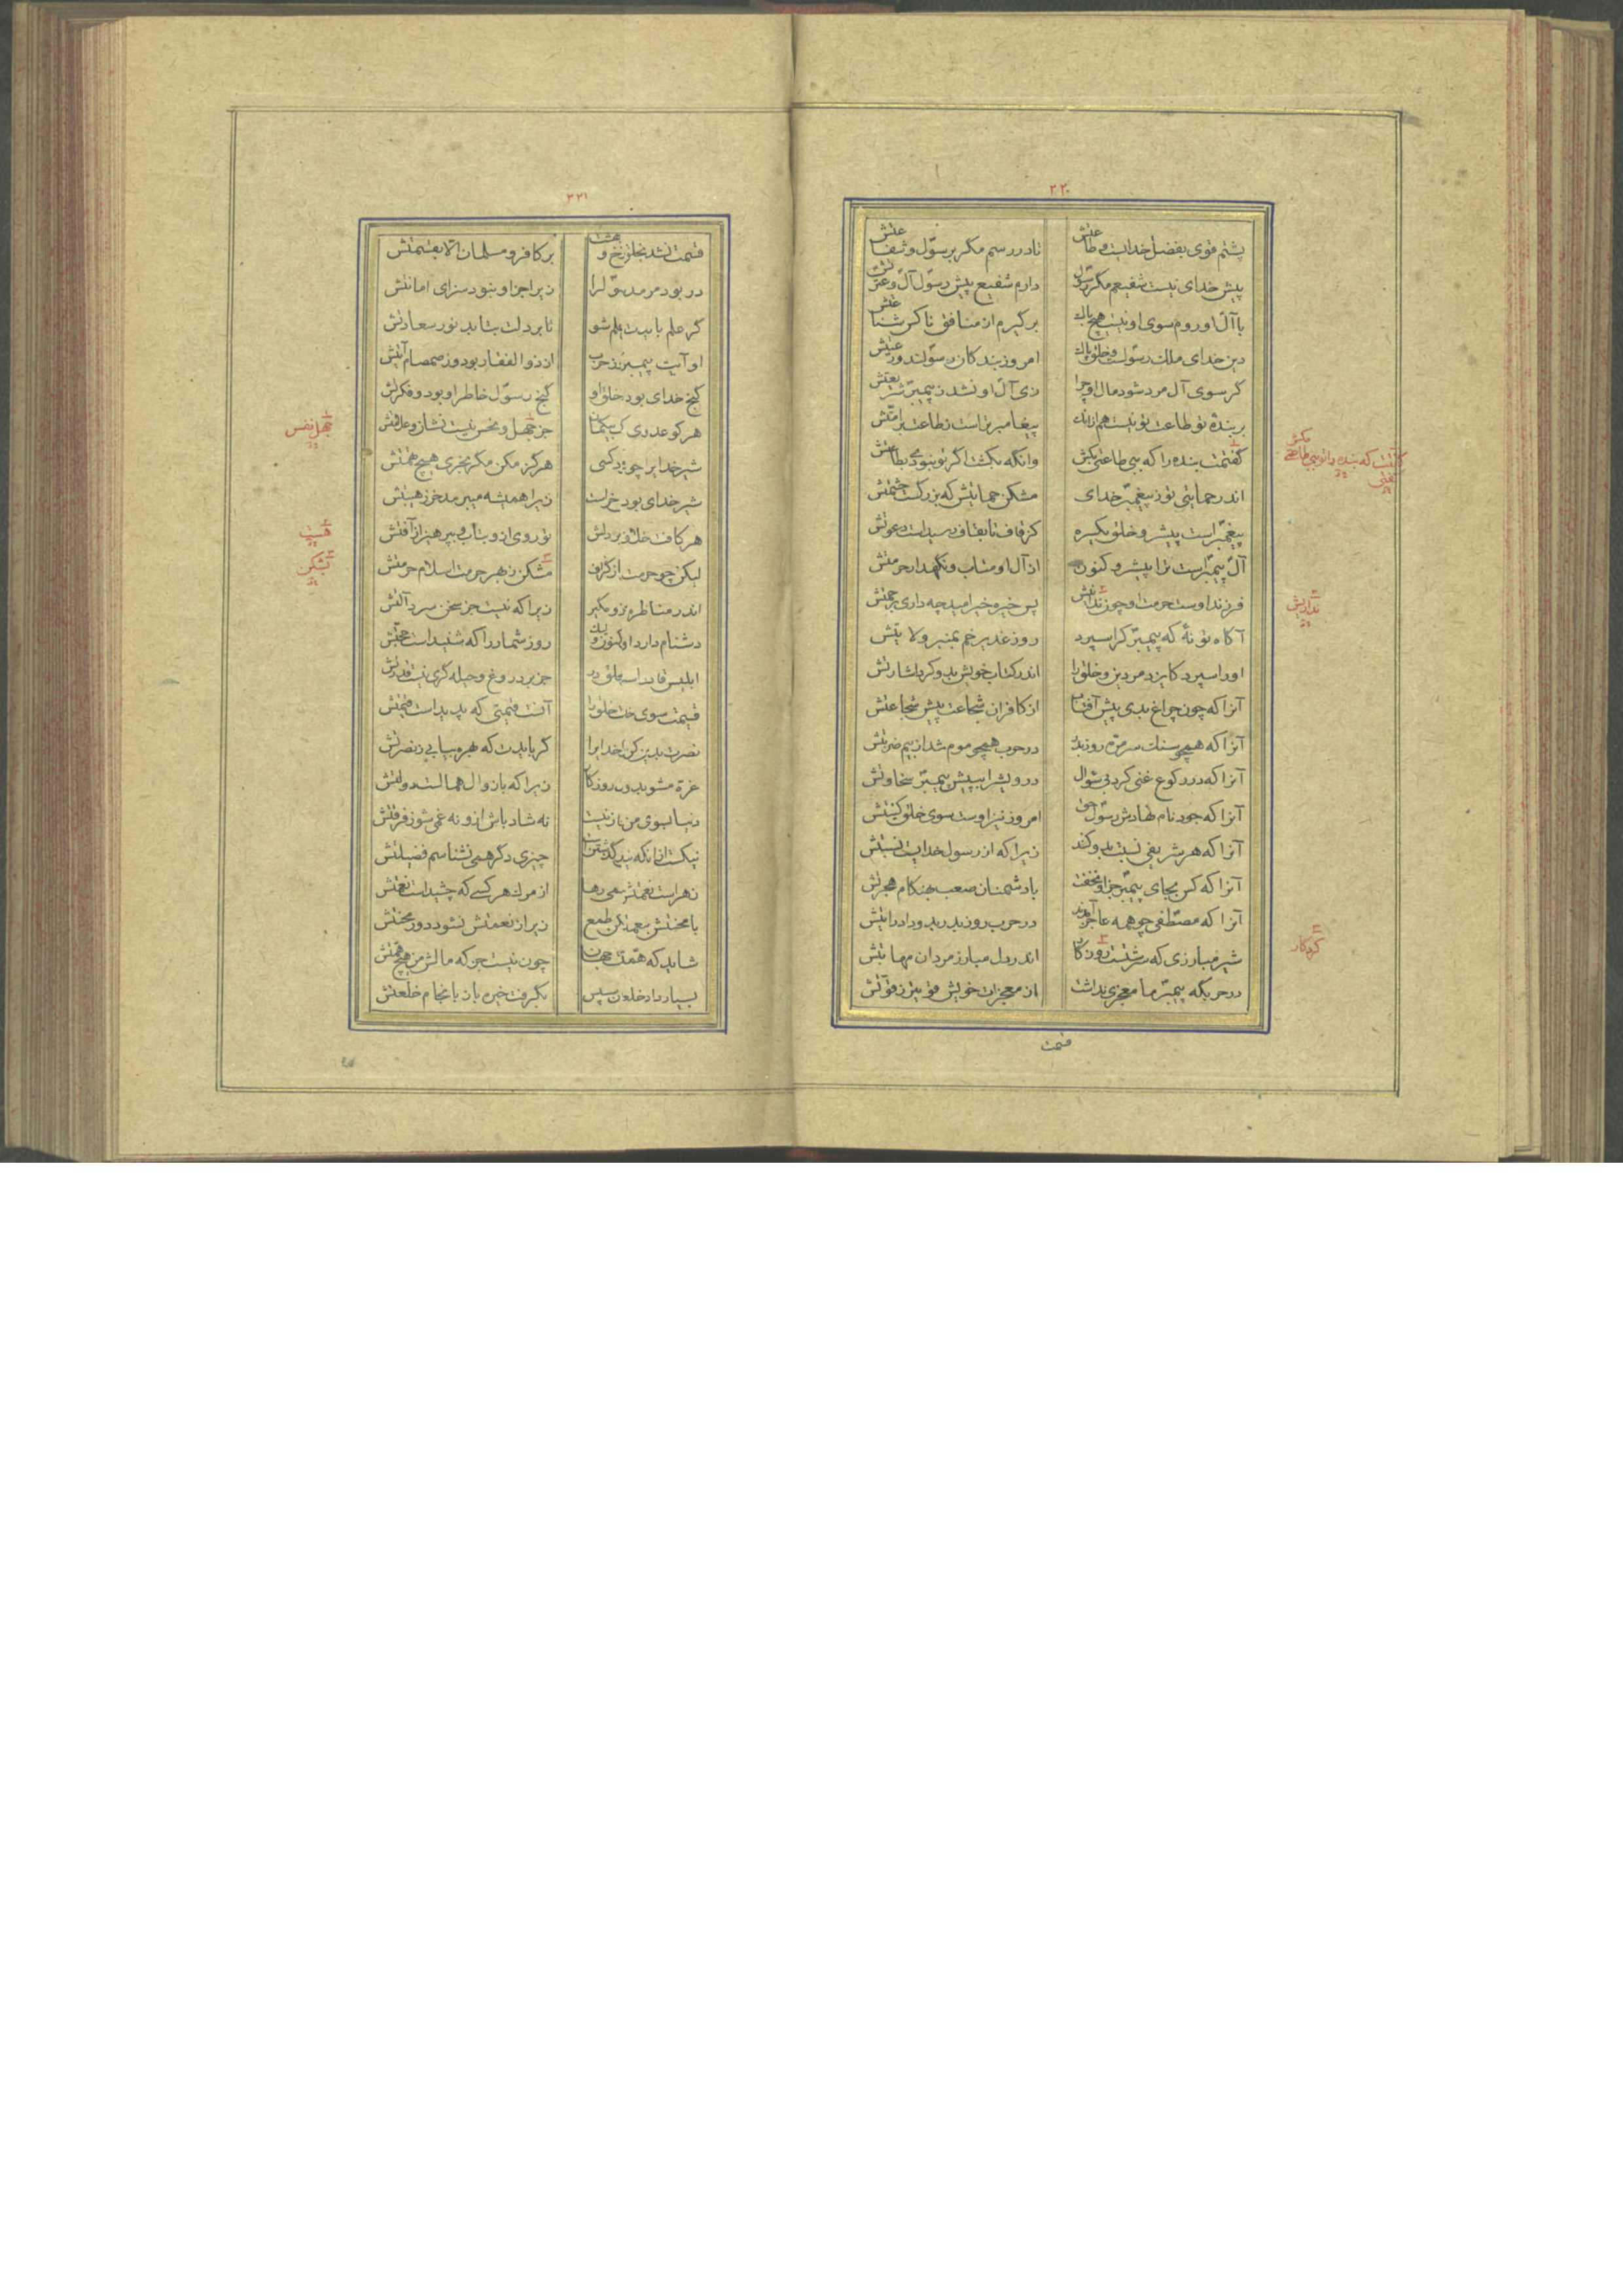 ۲۲۰
پشتم قوی بفضل خدایست و طاعتش
تا در رسم مگر برسول و شفاعتش
پیش خدای نیست شفیعم مگر رسول
دارم شفیع پیش رسول آل و عترتش
با آل او روم سوی او نیست هیچ باک
برگیرم از منافق ناکس شناعتش
دین خدای ملک رسولست و خلق پاک
امروز بندگان رسولند و رعیتش
گر سوی آل مرد شود مال او چرا
زی آل او نشد ز پیمبر شریعتش
بر بندهٔ تو طاعت تو نیست هم زانک
پیغامبر براست ز طاعت بر امتش
گفتمت بنده را که ببی طاعتی بکش
وانگه بکشت اگر تو نبود بطاعتش
اندر حمایتی تو ز پیغمبر خدای
مشکن حمایتش که بزرگست حشمتش
پیغمبر است پیشرو خلق یکسره
کز قاف تا بقاف رسیداست دعوتش
آل پیمبر است ترا پیشرو کنون
از آل او متاب و نگهدار حرمتش
فرزند اوست حرمت او چون ندانیش
پس خیره خیر امید چه داری برحمتش
آگاه تو نهٔ که پیمبر کرا سپرد
روز غدیر خم بمنبر ولایتش
او را سپرد کایزد مر دین و خلق را
اندر کتاب خویش بدو کرد اشارتش
آنرا که چون چراغ بدی پیش آفتاب
از کافران شجاعت پیش شجاعتش
آنرا که همچو سنگ سر مره روز بدر
در حرب همچو موم شد از بیم ضربتش
آنرا که در رکوع غنی کرد بی سوال
درویش را بپیش پیمبر سخاوتش
آنرا که جود نام نهادش رسول حق
امروز نیز اوست سوی خلق کنیتش
آنرا که هر شریفی نسبت بدو کند
زیرا که از رسول خدایست نسبتش
آنرا که کس بجای پیمبر جز او نخفت
با دشمنان صعب بهنگام هجرتش
آنرا که مصطفی چو همه عاجز آمدند
در حرب روز بدر بدو داد رایتش
شیر مبارزی که سرشتست روزگار
اندر دل مبارز مردان مهابتش
در حربگه پیمبر ما معجزی نداشت
از معجزات خویش قوی تر ز قوتش
قیمت
مکش
ندانیش
کردگار
۲۲۱
قسمت نشد بخلق نخ و هشت
بر کافر و مسلمان الا بقسمتش
در بود مر مدینهٔ علم رسول را
زیرا جز او نبود سزای امانتش
گر علم بایدت بدر علم شو
تا بر دلت بتابد نور سعادتش
او آیت پیمبر بد روز حرب
از ذوالفقار بود وز صمصام آیتش
گنج خدای بود خلق او
گنج رسول خاطر او بود و فکرتش
هر کو عدوی گنج
جز جهل و نحس نیست نشان و علامتش
شیر خدایرا چو
هرگز مکن مگر بخری هیچ تهمتش
شیر خدای بود خر است
زیرا همیشه میبرمد خر ز هیبتش
هر کافت خلاف بود بر دلش
تو روی ازو بتاب و بپرهیز از آفتش
لیکن چو حرمت از گزاف
مشکن ز بهر حرمت اسلام حرمتش
اندر مناظره بگیر
زیرا که نیست جز سخن سرد آلتش
دشنام دارد او کنون و لیک
روز شمار را که شنیداست حجتش
ابلیس قادر است خلق در
جز بر دروغ و حیله گری نیست قدرتش
قیمت سوی خدا خلق را
آنست قیمتی که بدینست قیمتش
نصرت بدین کن خدایرا
گر بایدت که بهره بیابی ز نصرتش
غره مشو بدولت روزگار
زیرا که با زوال همالست دولتش
دنیا بسوی من
نه شاد باش ازو نه غمی شو ز فرقتش
نیک است
چیزی دگر همی نشناسم فضیلتش
زهر است نعمتش
از مرگ هر کسی که چشیداست نعمتش
با محنتش بنعمت مکن طمع
زیرا ز نعمتش نشود دور محنتش
شاید که همتت
چون نیست جز که مالش من هیچ همتش
بسیار داد خلعت سپس
بگرفت خیره باز بانجام خلعتش
جهل نفس
هیبت
بشکن